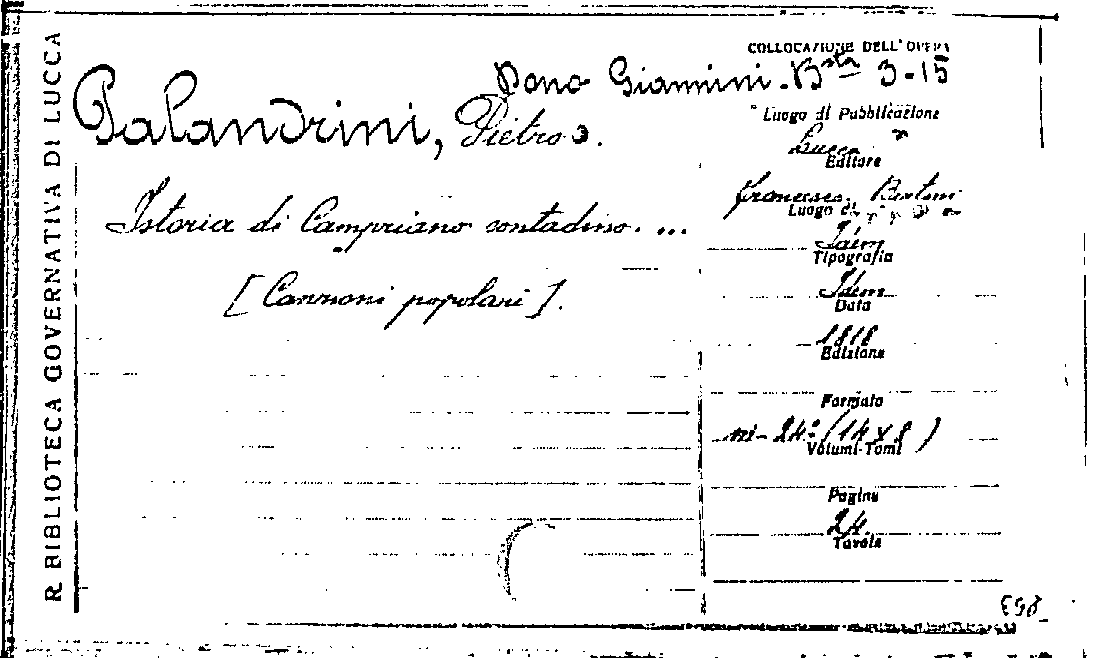 R. BIBLIOTECA GOVERNATIVA DI LUCCA
COLLOCAZIONE DELL'OPERA
Dono Giannini. Bsta 3-15
Palandrini, Pietro.
Istoria di Campriano contadino. ...
[Canzoni popolari].
Luogo di Pubblicazione
Lucca
Editore
Francesco Bertini
Luogo di
Idem
Tipografia
Idem
Data
1818
Edizione
Formato
in-24° (14x8)
Volumi-Tomi
Pagine
24.
Tavole